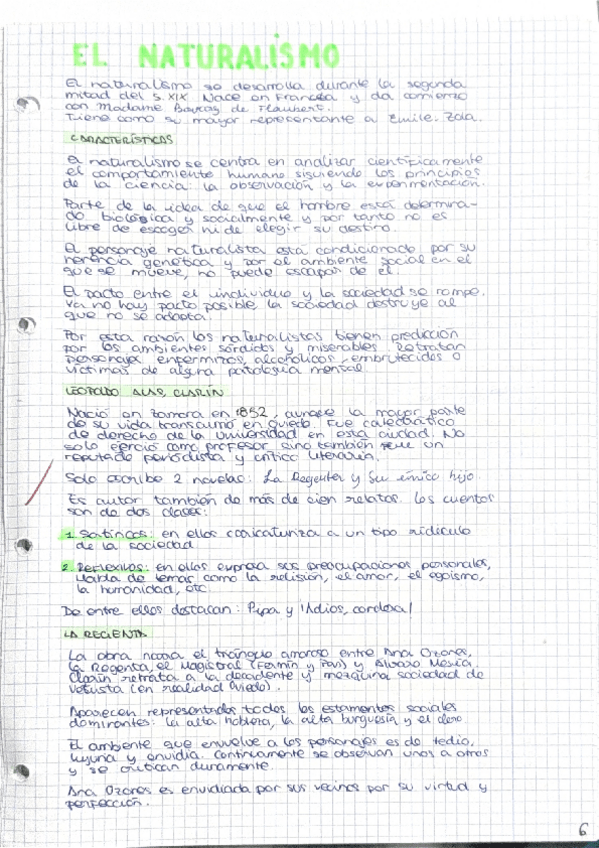 EL NATURALISMO
El naturalismo se desarrolla durante la segunda
mitad del S. XIX. Nace en Francia y da comienzo
con Madame Bovary de Flaubert.
Tiene como su mayor representante a Emile. Zola.
CARACTERÍSTICAS
El naturalismo se centra en analizar científicamente
el comportamiento humano siguiendo los principios
de la ciencia: la observación y la experimentación.
Parte de la idea de que el hombre está determina-
do biológica y socialmente y por tanto no es
libre de escoger ni de elegir su destino.
El personaje naturalista está condicionado por su
herencia genética y por el ambiente social en el
que se mueve, no puede escapar de él.
El pacto entre el individuo y la sociedad se rompe.
Ya no hay pacto posible la sociedad destruye al
que no se adapta.
Por esta razón los naturalistas tienen predicción
por los ambientes sórdidos y miserables. Retratan
personajes enfermizos, alcohólicos, embrutecidos o
víctimas de alguna patología mental.
LEOPOLDO ALAS, CLARÍN
Nació en Zamora en 1852, aunque la mayor parte
de su vida transcurrió en Oviedo. Fue catedrático
de derecho de la Universidad en esta ciudad. No
solo ejerció como profesor sino también fue un
reputado periodista y crítico literario.
Solo escribe 2 novelas: La Regenta y Su único hijo.
Es autor también de más de cien relatos. Los cuentos
son de dos clases:
1. Satíricos: en ellos caricaturiza a un tipo ridículo
de la sociedad
2. Reflexivos: en ellos expresa sus preocupaciones personales,
Habla de temas como la religión, el amor, el egoísmo,
la humanidad, etc.
De entre ellos destacan: Pipa y ¡Adios, cordera!
LA REGENTA
La obra narra el triángulo amoroso entre Ana Ozores,
la Regenta, el Magistral (Fermín y Pan) y Álvaro Mesía.
Clarín retrata a la decadente y mezquina sociedad de
Vetusta (en realidad Oviedo).
Aparecen representados todos los estamentos sociales
dominantes: la alta nobleza, la alta burguesía y el clero.
El ambiente que envuelve a los personajes es de tedio,
lujuria y envidia. Continuamente se observan unos a otros
y se critican duramente.
Ana Ozores es envidiada por sus vecinos por su virtud y
perfección.
6